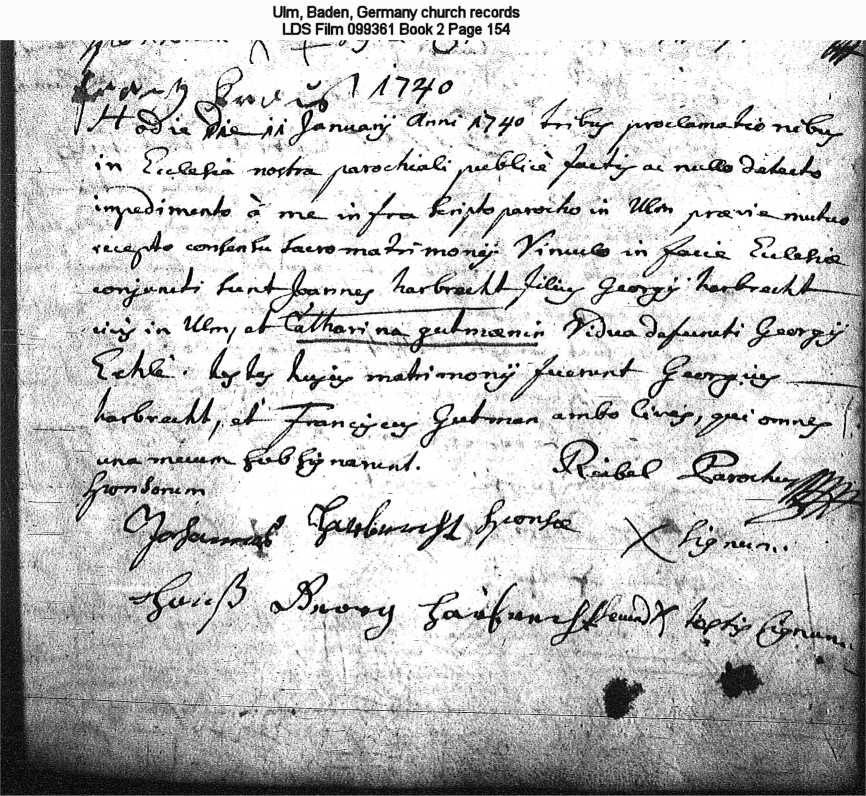 Ulm, Baden, Germany church records
LDS Film 099361 Book 2 Page 154
1740
Hodie die 11 Januarij Anni 1740 tribus proclamationibus
in Ecclesia nostra parochiali publicè factis ac nullo detecto
impedimento à me infra scripto parocho in Ulm prævie mutuo
recepto consensu sacro matrimonij Vinculo in facie Ecclesiæ
conjuncti sunt Joannes harbrecht filius Georgij harbrecht
civis in Ulm, et Catharina gutmænin Vidua defuncti Georgij
Eckle. testes hujus matrimonij fuerunt Georgius
harbrecht, et Franciscus Gutman ambo cives, qui omnes
una mecum subsignarunt. Reibel Parochus
sponsorum
Johannes Harbrecht sponsæ X signum
Georg Harbrecht X testis signum